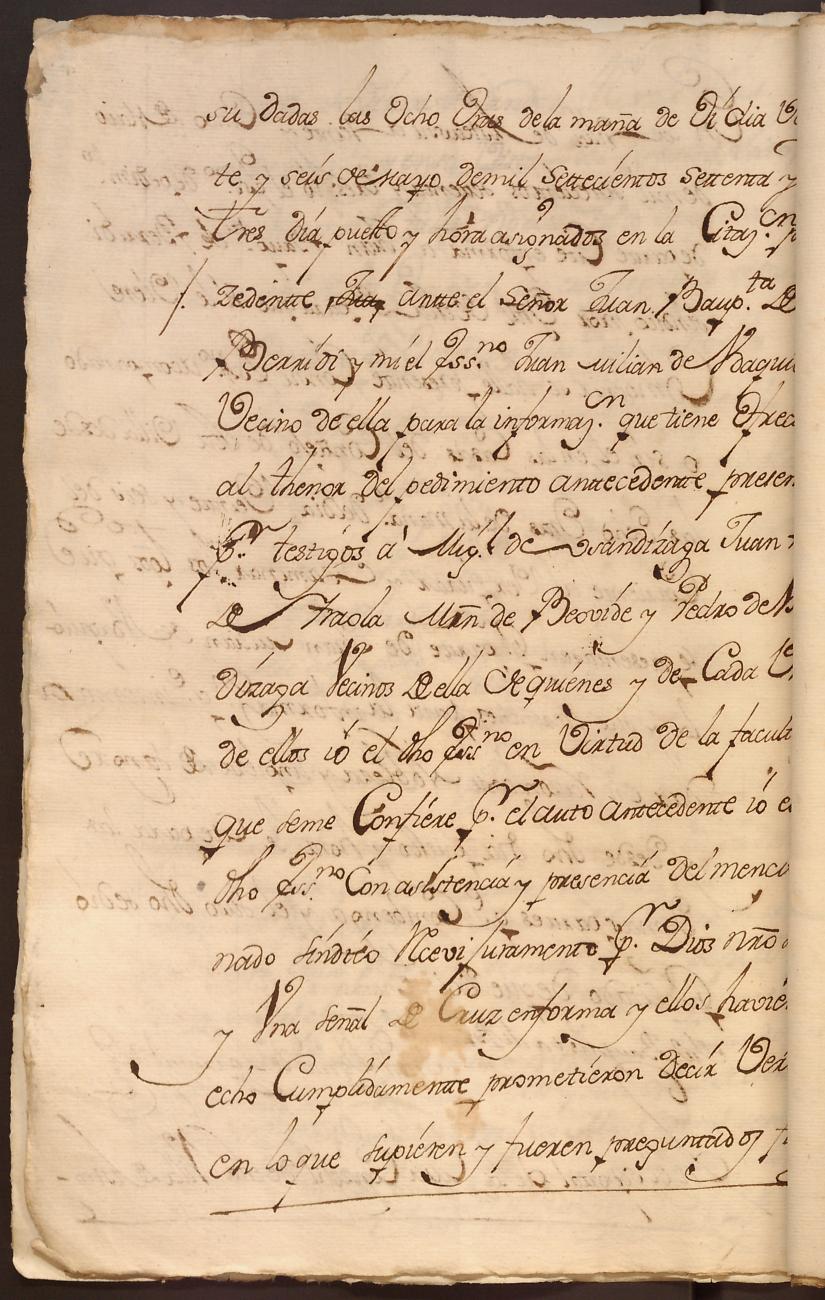 su dadas las ocho oras de la mañana de oi dia Ve
te y seis de mayo de mil settecientos settenta y
tres dia puesto y hora asignados en la Citaz.on p
zedentte antte el Señor Juan Baup.ta de
Berridi y mi el Ess.no Juan Julian de
Vecino de ella para la informaz.on que tiene ofrec
al thenor del pedimiento antecedente presen
p.r testigos á Mig.l de Juan
de Mrn de Beovide y Pedro de
dizaga Vecinos de ella de quienes y de Cada V
de ellos ió el dho Ess.no en Virtud de la facult
que seme Confiére p.r el auto antecedente ió el
dho Ess.no Con asistencia y presencia del menci
nado sindico Recevi Juramento p.r Dios nro
y Vna señal de Cruz en forma y ellos havie
echo Cumplidamentte prometieron Decir Ver
en lo que supiéren y fueren preguntados